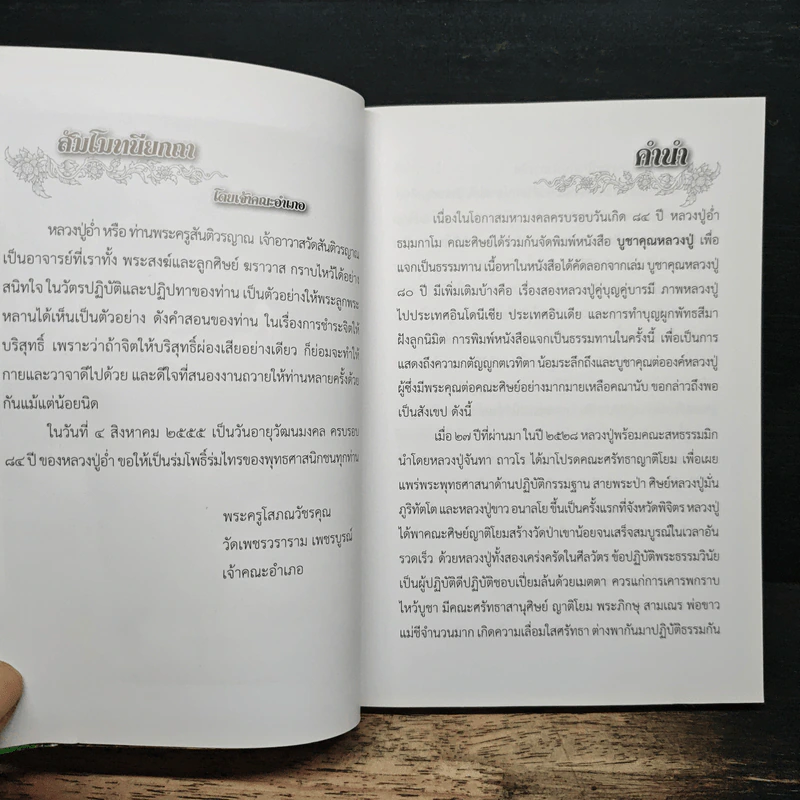 สัมโมทนียกถา
โดยเจ้าคณะอำเภอ
หลวงปู่อ่ำ หรือ ท่านพระครูสันติวรญาณ เจ้าอาวาสวัดสันติวรญาณ
เป็นอาจารย์ที่เราทั้ง พระสงฆ์และลูกศิษย์ ฆราวาส กราบไหว้ได้อย่าง
สนิทใจ ในวัตรปฏิบัติและปฏิปทาของท่าน เป็นตัวอย่างให้พระลูกพระ
หลานได้เห็นเป็นตัวอย่าง ดังคำสอนของท่าน ในเรื่องการชำระจิตให้
บริสุทธิ์ เพราะว่าถ้าจิตให้บริสุทธิ์ผ่องเสียอย่างเดียว ก็ย่อมจะทำให้
กายและวาจาดีไปด้วย และดีใจที่สนองงานถวายให้ท่านหลายครั้งด้วย
กันแม้แต่น้อยนิด
ในวันที่ ๔ สิงหาคม ๒๕๕๕ เป็นวันอายุวัฒนมงคล ครบรอบ
๘๔ ปี ของหลวงปู่อ่ำ ขอให้เป็นร่มโพธิ์ร่มไทรของพุทธศาสนิกชนทุกท่าน
พระครูโสภณวัชรคุณ
วัดเพชรวราราม เพชรบูรณ์
เจ้าคณะอำเภอ
คำนำ
เนื่องในโอกาสมหามงคลครบรอบวันเกิด ๘๔ ปี หลวงปู่อ่ำ
ธมฺมกาโม คณะศิษย์ได้ร่วมกันจัดพิมพ์หนังสือ บูชาคุณหลวงปู่ เพื่อ
แจกเป็นธรรมทาน เนื้อหาในหนังสือได้คัดลอกจากเล่ม บูชาคุณหลวงปู่
๘๐ ปี มีเพิ่มเติมบ้างคือ เรื่องสองหลวงปู่คู่บุญคู่บารมี ภาพหลวงปู่
ไปประเทศอินโดนีเซีย ประเทศอินเดีย และการทำบุญผูกพัทธสีมา
ฝังลูกนิมิต การพิมพ์หนังสือแจกเป็นธรรมทานในครั้งนี้ เพื่อเป็นการ
แสดงถึงความกตัญญูกตเวทิตา น้อมระลึกถึงและบูชาคุณต่อองค์หลวงปู่
ผู้ซึ่งมีพระคุณต่อคณะศิษย์อย่างมากมายเหลือคณานับ ขอกล่าวถึงพอ
เป็นสังเขป ดังนี้
เมื่อ ๒๗ ปีที่ผ่านมา ในปี ๒๕๒๘ หลวงปู่พร้อมคณะสหธรรมมิก
นำโดยหลวงปู่จันทา ถาวโร ได้มาโปรดคณะศรัทธาญาติโยม เพื่อเผย
แพร่พระพุทธศาสนาด้านปฏิบัติกรรมฐาน สายพระป่า ศิษย์หลวงปู่มั่น
ภูริทัตโต และหลวงปู่ขาว อนาลโย ขึ้นเป็นครั้งแรกที่จังหวัดพิจิตร หลวงปู่
ได้พาคณะศิษย์ญาติโยมสร้างวัดป่าเขาน้อยจนเสร็จสมบูรณ์ในเวลาอัน
รวดเร็ว ด้วยหลวงปู่ทั้งสองเคร่งครัดในศีลวัตร ข้อปฏิบัติพระธรรมวินัย
เป็นผู้ปฏิบัติดีปฏิบัติชอบเปี่ยมล้นด้วยเมตตา ควรแก่การเคารพกราบ
ไหว้บูชา มีคณะศรัทธาสานุศิษย์ ญาติโยม พระภิกษุ สามเณร พ่อขาว
แม่ชีจำนวนมาก เกิดความเลื่อมใสศรัทธา ต่างพากันมาปฏิบัติธรรมกัน